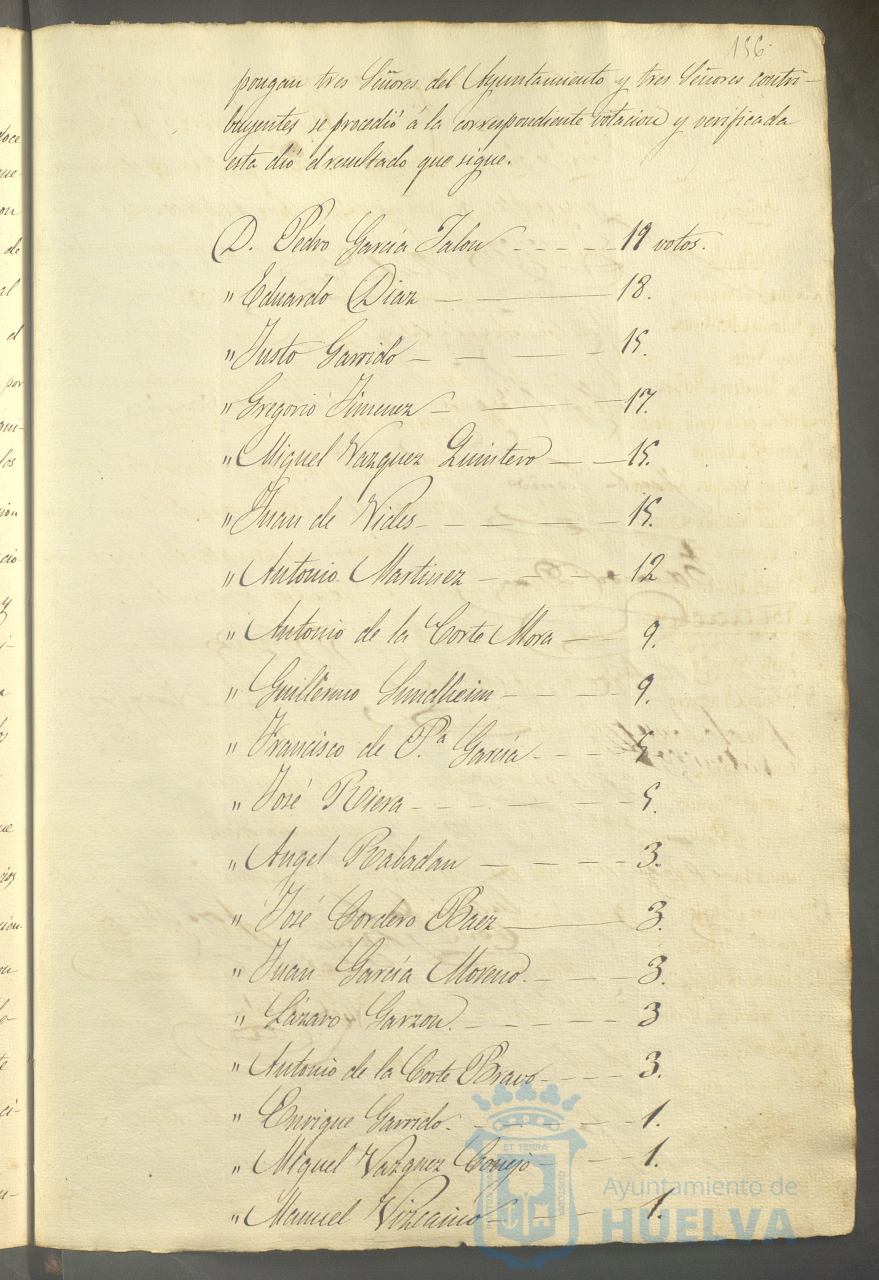 156.
pongan tres Señores del Ayuntamiento y tres Señores contri-
buyentes se procedió á la correspondiente votacion y verificada
esta dió el resultado que sigue.
D. Pedro García Jalon - - - - 19 votos.
" Eduardo Diaz — — 18.
" Justo Garrido — - - - 15.
" Gregorio Jimenez - - - 17.
" Miguel Vazquez Quintero — — 15.
" Juan de Vides - - - - 15.
" Antonio Martinez - - - - 12
" Antonio de la Corte Mora — - 9.
" Guillermo Sundheim - - - - 9.
" Francisco de P.a García - - - 5
" José Riera - - - - - 5.
" Angel Rabadan — - - - 3.
" José Cordero Baez — — 3.
" Juan García Moreno. - - - - 3.
" Lázaro Garzon. - - - - 3
" Antonio de la Corte Bravo - - - 3.
" Enrique Garrido. - - - - 1.
" Miguel Vazquez Conejo - - - 1.
" Manuel Vizcaino - - - 1.
ET TERRÆ
Ayuntamiento de
HUELVA
doce
que
on
de
al
el
por
los
cio
y